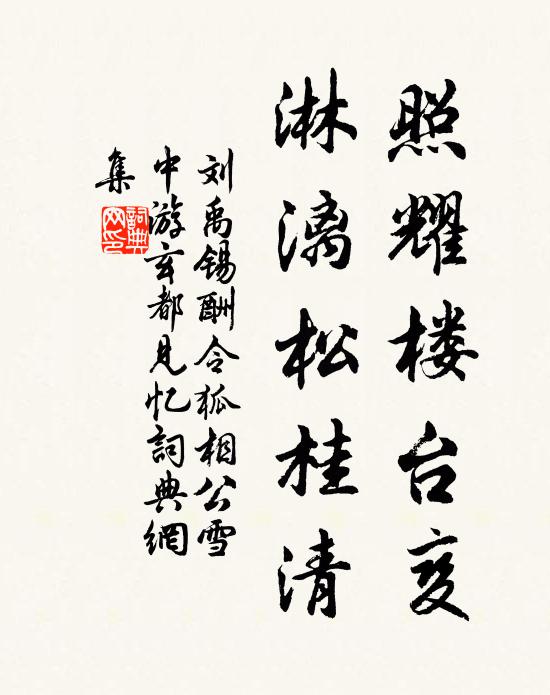 照耀楼台变
淋漓松桂清
刘禹锡酬令狐相公雪
中游玄都见忆詞典網
集
詞典網印